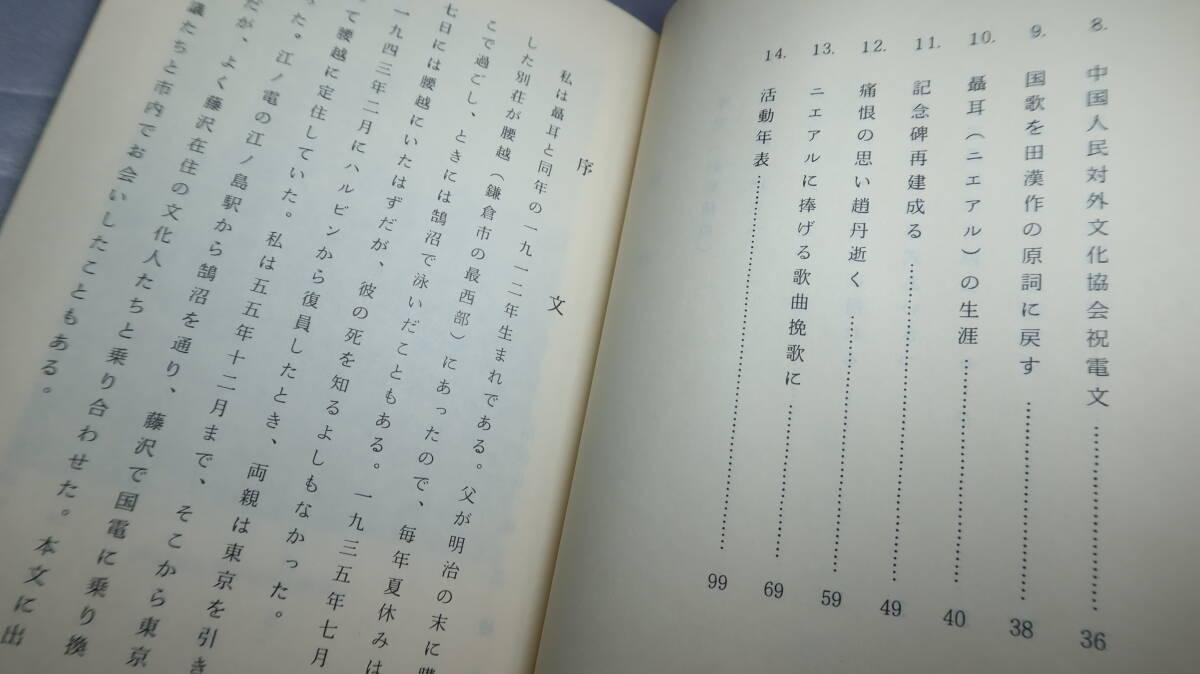 8. 中国人民対外文化協会祝電文…………………… 36
9. 国歌を田漢作の原詞に戻す…………………… 38
10. 聶耳（ニエアル）の生涯…………………… 40
11. 記念碑再建成る…………………… 49
12. 痛恨の思い趙丹逝く…………………… 59
13. ニエアルに捧げる歌曲挽歌に…………………… 69
14. 活動年表…………………… 99
序文
私は聶耳と同年の一九一二年生まれである。父が明治の末に
した別荘が腰越（鎌倉市の最西部）にあったので、毎年夏休みは
こで過ごし、ときには鵠沼で泳いだこともある。一九三五年七月
七日には腰越にいたはずだが、彼の死を知るよしもなかった。
一九四三年二月にハルビンから復員したとき、両親は東京を引き
て腰越に定住していた。私は五五年十二月まで、そこから東京
た。江ノ電の江ノ島駅から鵠沼を通り、藤沢で国電に乗り換
だが、よく藤沢在住の文化人たちと乗り合わせた。本文に出
議たちと市内でお会いしたこともある。